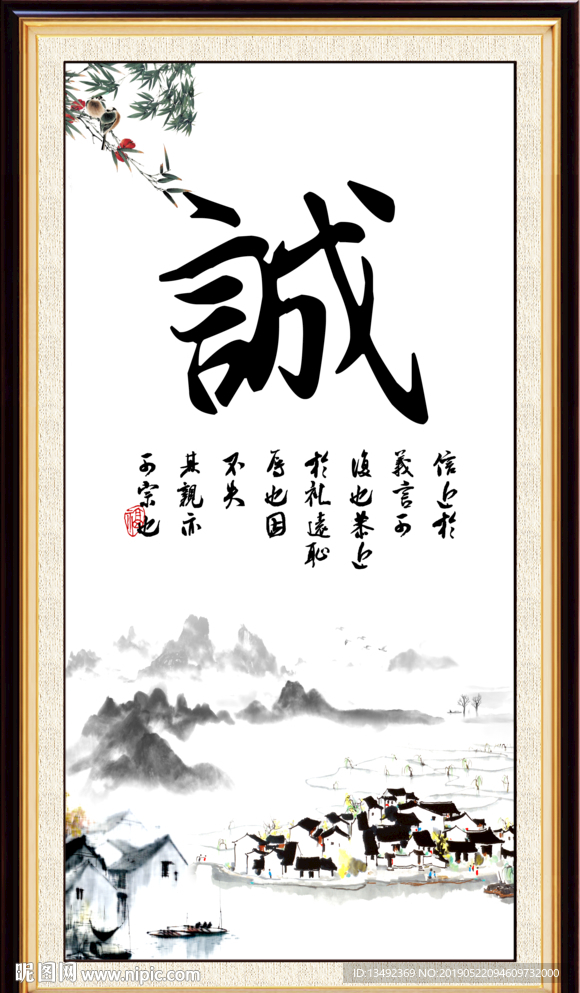 誠
信近於
義言可
復也恭近
於礼遠恥
辱也因
不失
其親亦
可宗也
昵图网 www.nipic.com
ID:13492369 NO:20190522094609732000